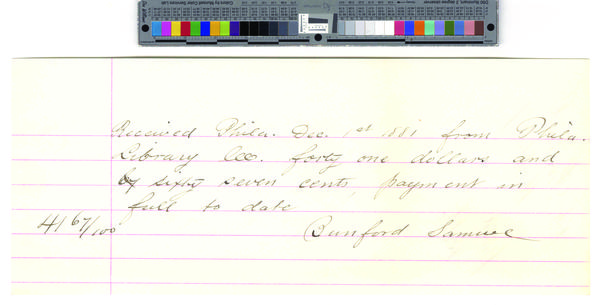 Received Phila. Dec. 1st 1881 from Phila.
Library Co. forty one dollars and
sixty seven cents, payment in
full to date
41 67/100
Bunford Samuel